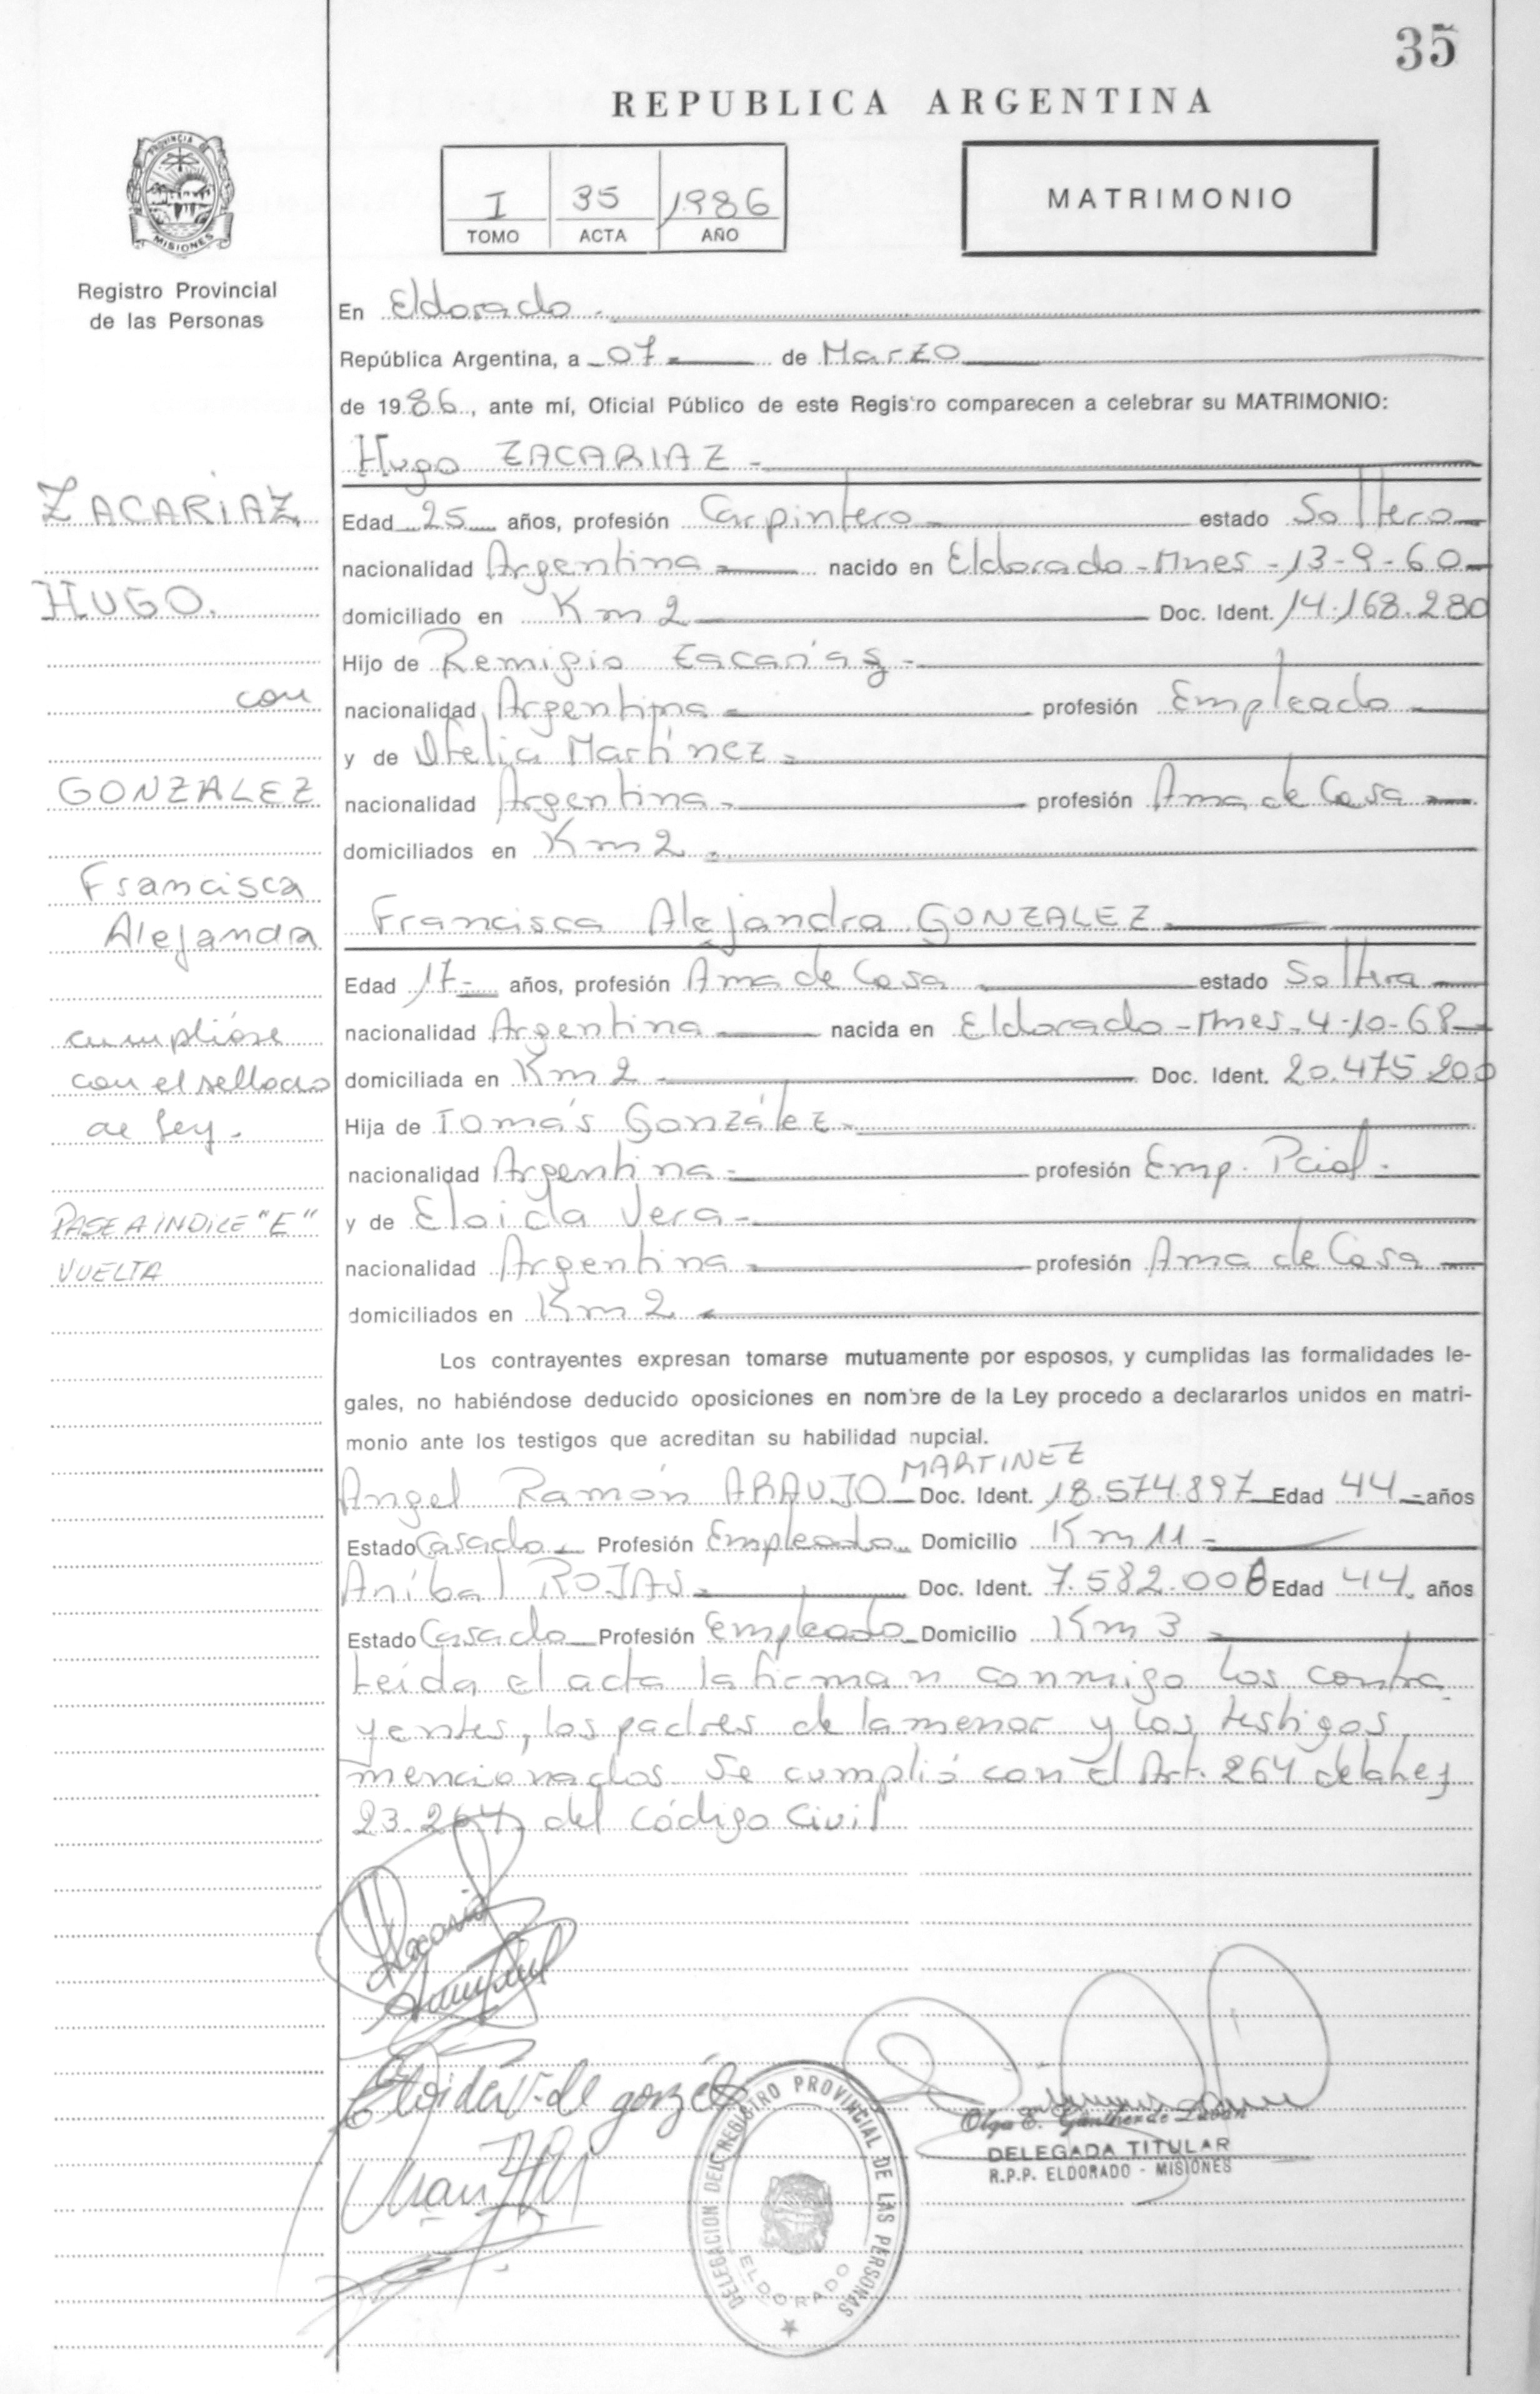 35
REPUBLICA ARGENTINA
PROVINCIA DE
MISIONES
I 35 1986
TOMO ACTA AÑO
MATRIMONIO
Registro Provincial
de las Personas
En Eldorado.
República Argentina, a 07 de Marzo
de 1986, ante mí, Oficial Público de este Registro comparecen a celebrar su MATRIMONIO:
Hugo ZACARIAZ -
ZACARIAZ
Edad 25 años, profesión Carpintero estado Soltero
nacionalidad Argentina nacido en Eldorado - Mnes - 13-9-60
HUGO.
domiciliado en Km 2 Doc. Ident. 14.168.280
Hijo de Remigio Zacarías -
con
nacionalidad Argentina profesión Empleado
y de Ofelia Martínez
GONZALEZ
nacionalidad Argentina profesión Ama de Casa
domiciliados en Km 2
Francisca
Alejanda
Francisca Alejandra GONZALEZ
Edad 17 años, profesión Ama de Casa estado Soltera
nacionalidad Argentina nacida en Eldorado - Mnes - 4-10-68
cumplióse
con el sellado
de ley.
domiciliada en Km 2 Doc. Ident. 20.475.200
Hija de Tomás González
nacionalidad Argentina profesión Emp. Pcial.
PASE A INDICE "E"
VUELTA
y de Eloida Vera
nacionalidad Argentina profesión Ama de Casa
domiciliados en Km 2
Los contrayentes expresan tomarse mutuamente por esposos, y cumplidas las formalidades le-
gales, no habiéndose deducido oposiciones en nombre de la Ley procedo a declararlos unidos en matri-
monio ante los testigos que acreditan su habilidad nupcial.
MARTINEZ
Angel Ramón ARAUJO Doc. Ident. 18.574.897 Edad 44 años
Estado Casado Profesión Empleado Domicilio Km 11
Aníbal ROJAS Doc. Ident. 7.582.008 Edad 44 años
Estado Casado Profesión empleado Domicilio Km 3
Leída el acta la firman conmigo los contra
yentes, los padres de la menor y los testigos
mencionados. Se cumplió con el Art. 264 de la Ley
23.264 del Código Civil
Eloida V. de gonzél
DELEGACION DEL REGISTRO PROVINCIAL DE LAS PERSONAS
ELDORADO
Olga E. Günther de Laban
DELEGADA TITULAR
R.P.P. ELDORADO - MISIONES